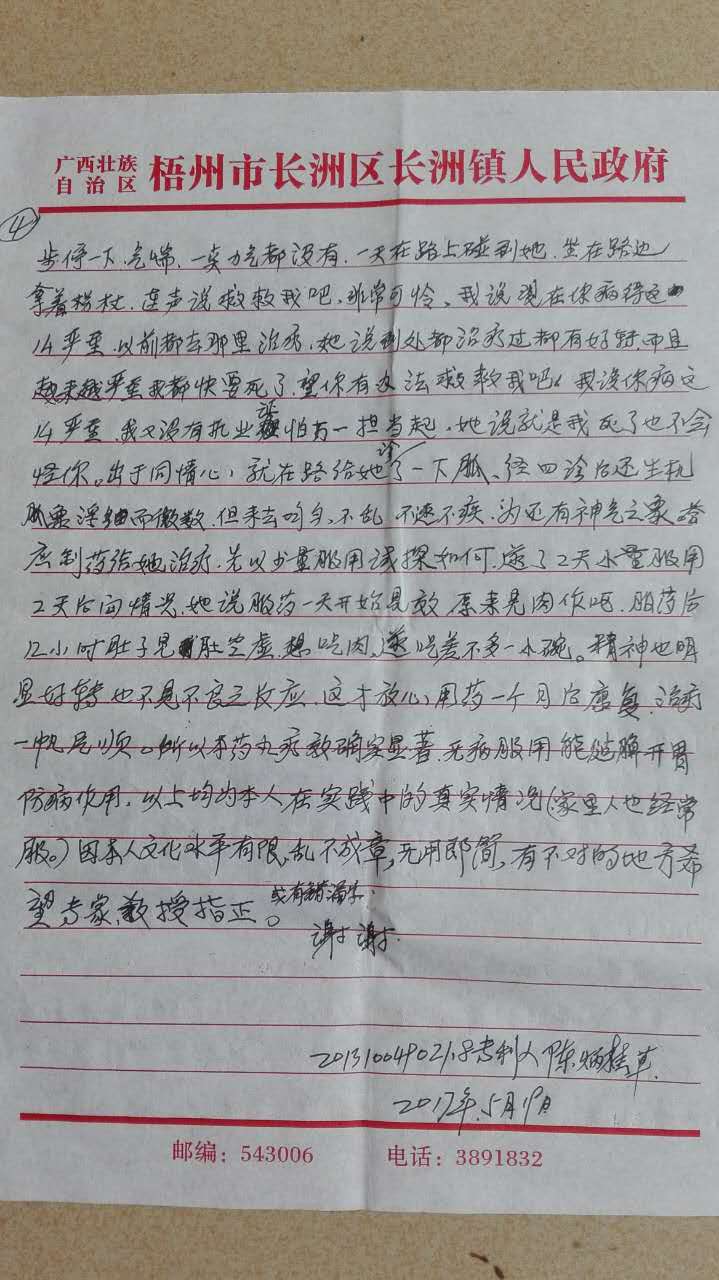 广西壮族
自治区 梧州市长洲区长洲镇人民政府
④
步停一下、气喘、一点力气都没有、一天在路上碰到她、坐在路边
拿着拐杖、连声说救救我吧、非常可怜、我说现在你病得这
么严重、以前都去那里治疗、她说到处都治疗过都有好转、而且
越来越严重我都快要死了、望你有办法救救我吧！我说你病这
么严重、我又没有执业证怕万一担当起、她说就是我死了也不会
怪你。出于同情心、就在路给她诊了一下脉、经四诊后还生机
脉票浮细而微数、但来去匀、不乱、不速不疾、为还有神气之象答
应制药给她治疗、先以少量服用试探如何、送了2天小量服用
2天后问情况、她说服药一天开始见效、原来见肉作呕、服药后
12小时肚子见肚空虚、想吃肉、吃差不多一小碗。精神也明
显好转也不见不良之反应、这才放心、用药一个月后康复、治疗
一帆风顺。所以本药丸疗效确实显著、无病服用能健脾开胃
防病作用、以上均为本人在实践中的真实情况（家里人也经常
服。）因本人文化水平有限、乱不成章、无用即简、有不对的地方希
望专家、教授指正。或有错漏字、
谢谢、
201310049021.8专利人 陈炳桂草、
2017年、5月19日
邮编：543006 电话：3891832